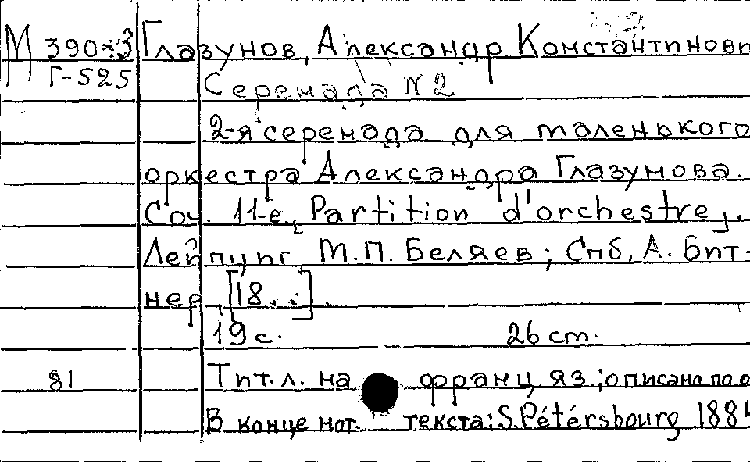 М 390-3 Глазунов, Александр Константинови
Г-525 Серенада N 2
2-я серенада для маленького
оркестра Александра Глазунова.
Соч. 11-е. Partition d'orchestre,.
Лейпциг, М.П. Беляев; Спб, А. Битт-
нер [18..].
19 с. 26 cm.
81 Тит. л. на франц. яз.; описано по о
В конце нот. текста: S. Pétersbourg 188